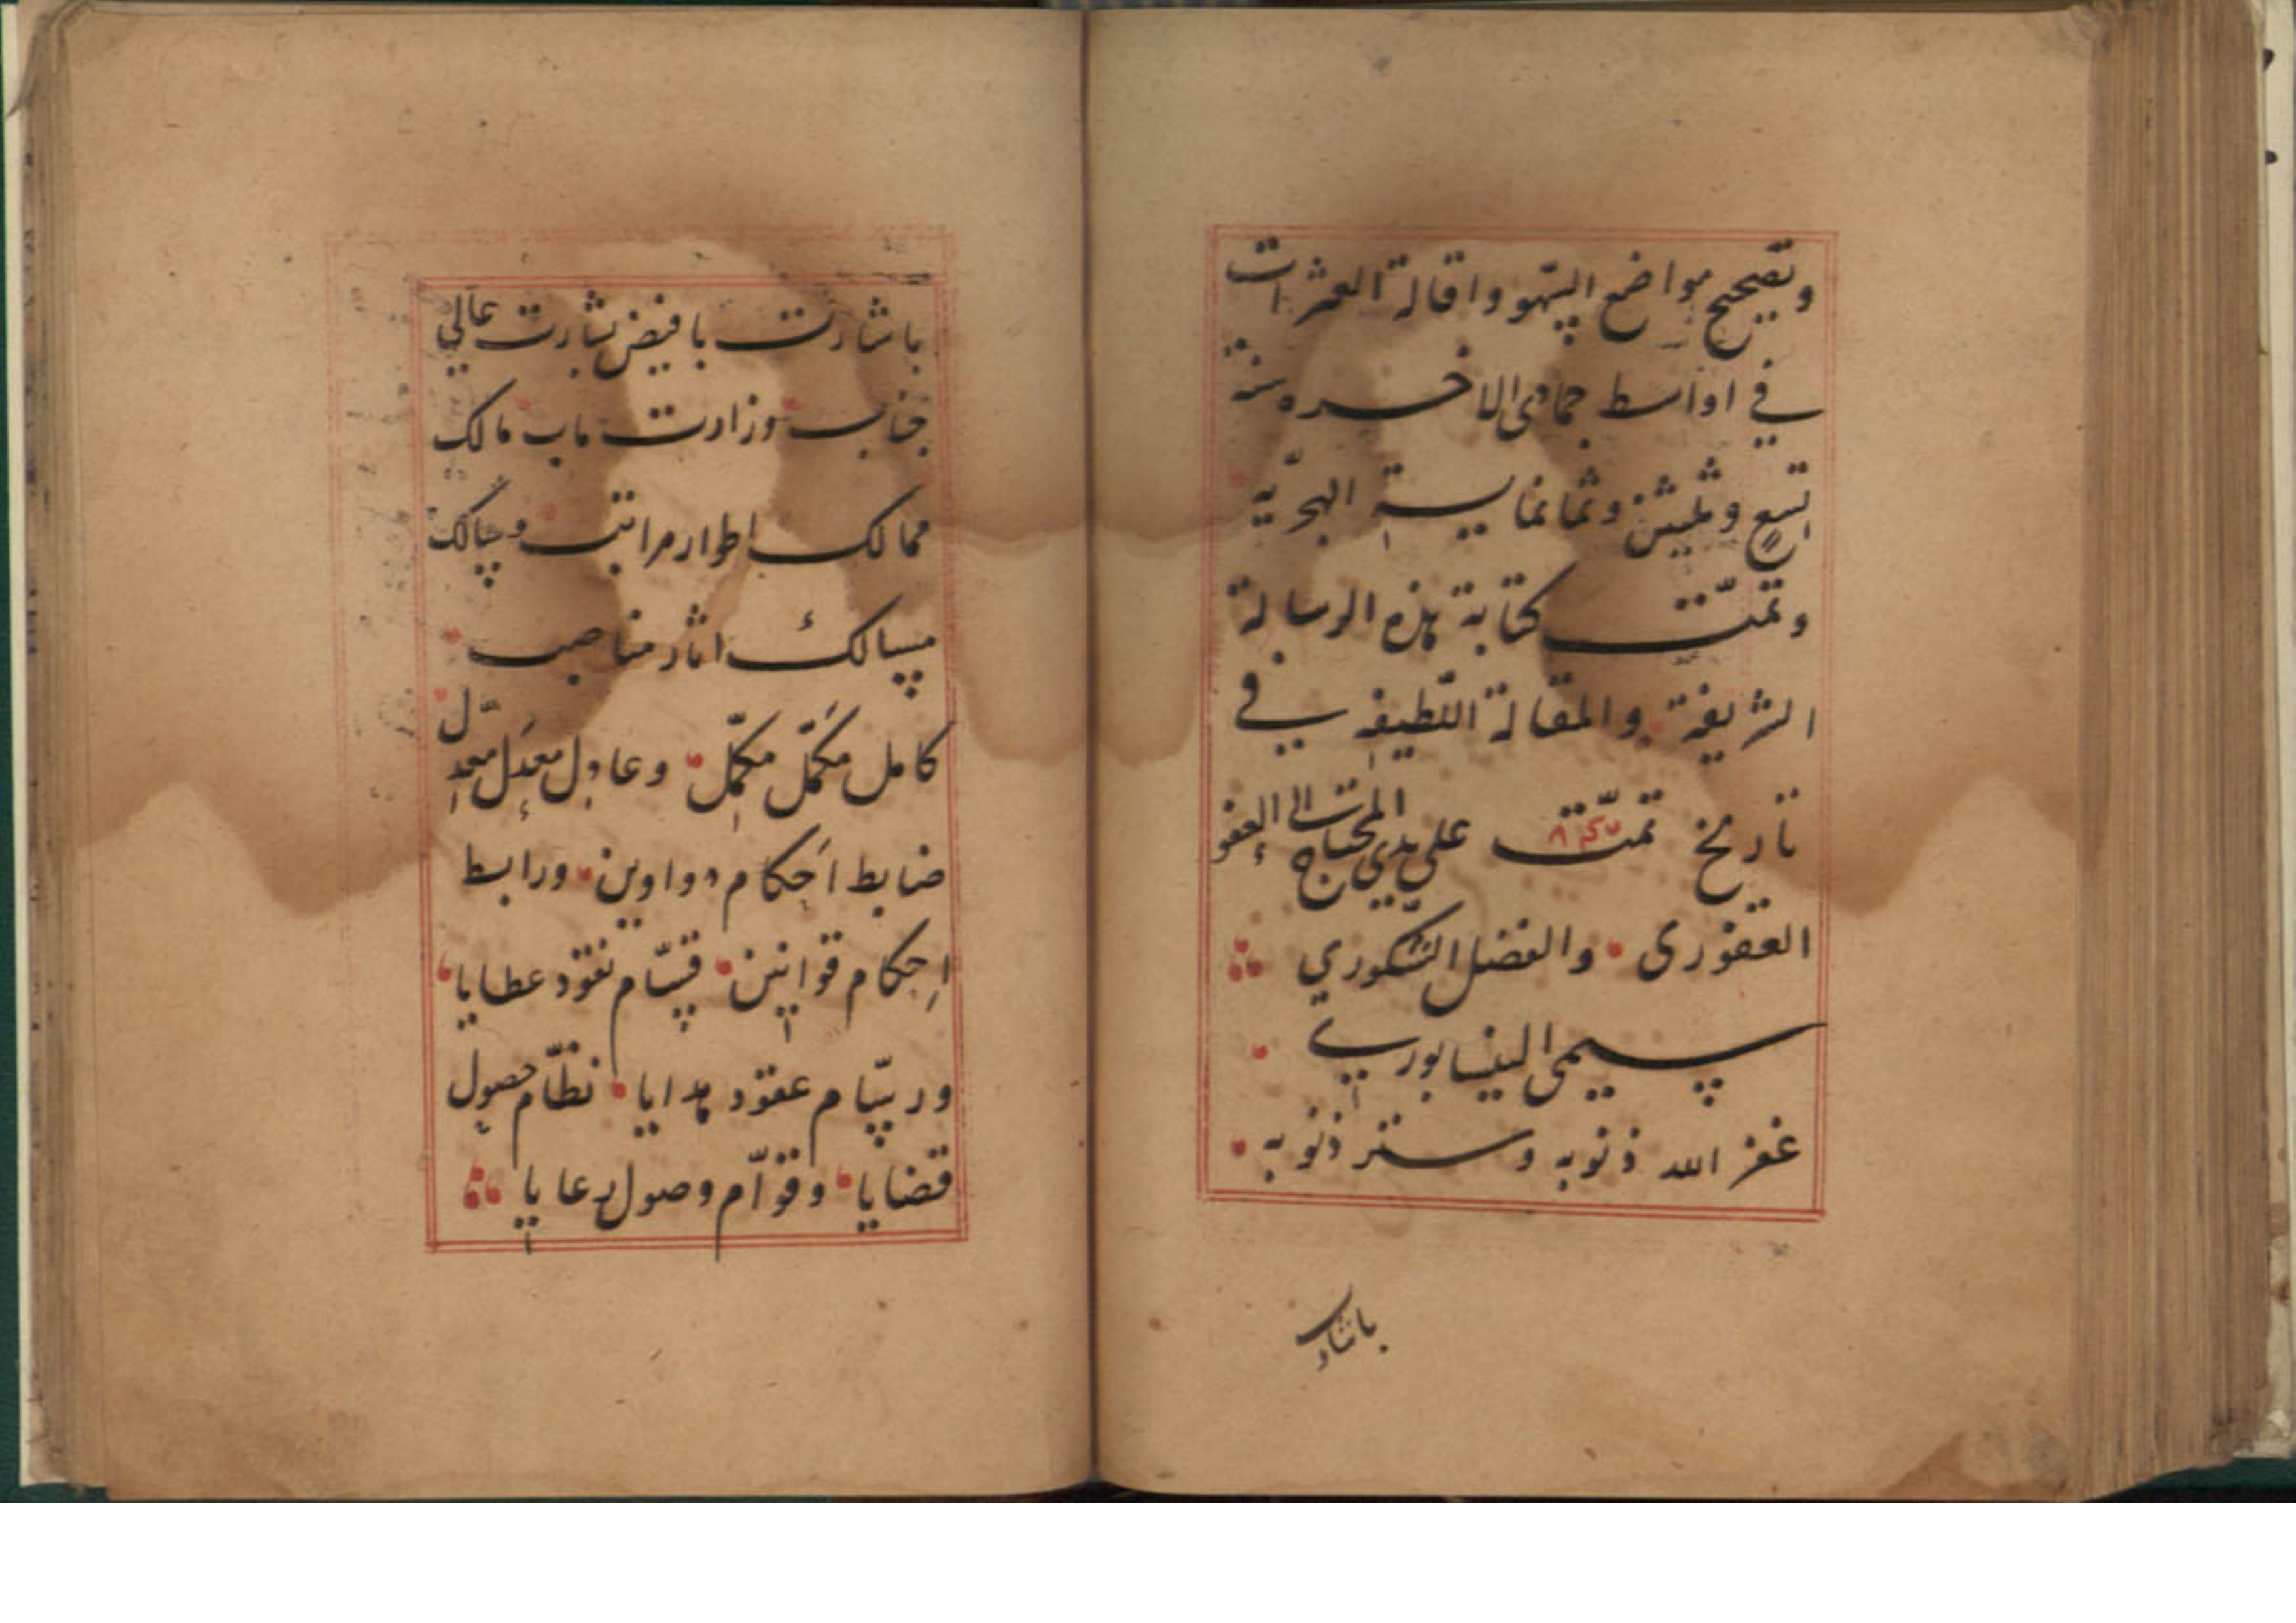 وتصحيح مواضع السّهو واقالة العثرات
في اواسط جمادى الاخره سنة
تسعٍ وثلثين وثمانماية الهجريّه
وتمّت كتابة هذه الرسالة
الشريفة والمقالة اللّطيفه في
تاريخ تمّت على يدي المحتاج الى العفو
الغفورى والفضل الشّكوري
سيمى النيسابوري
غفر الله ذنوبه وستر ذنوبه
باشارت
باشارت بافيض بشارت عالي
جناب وزارت ماب مالك
ممالك اطوار مراتب وسالك
مسالك اثار مناصب
كامل مكمَّل مكمِّل وعادل معدَل معدّل
ضابط اَحكام دواوين ورابط
اِحكام قوانين قسّام نقود عطايا
ورسّام عقود هدايا نظّام حصول
قضايا وقوّام وصول رعايا